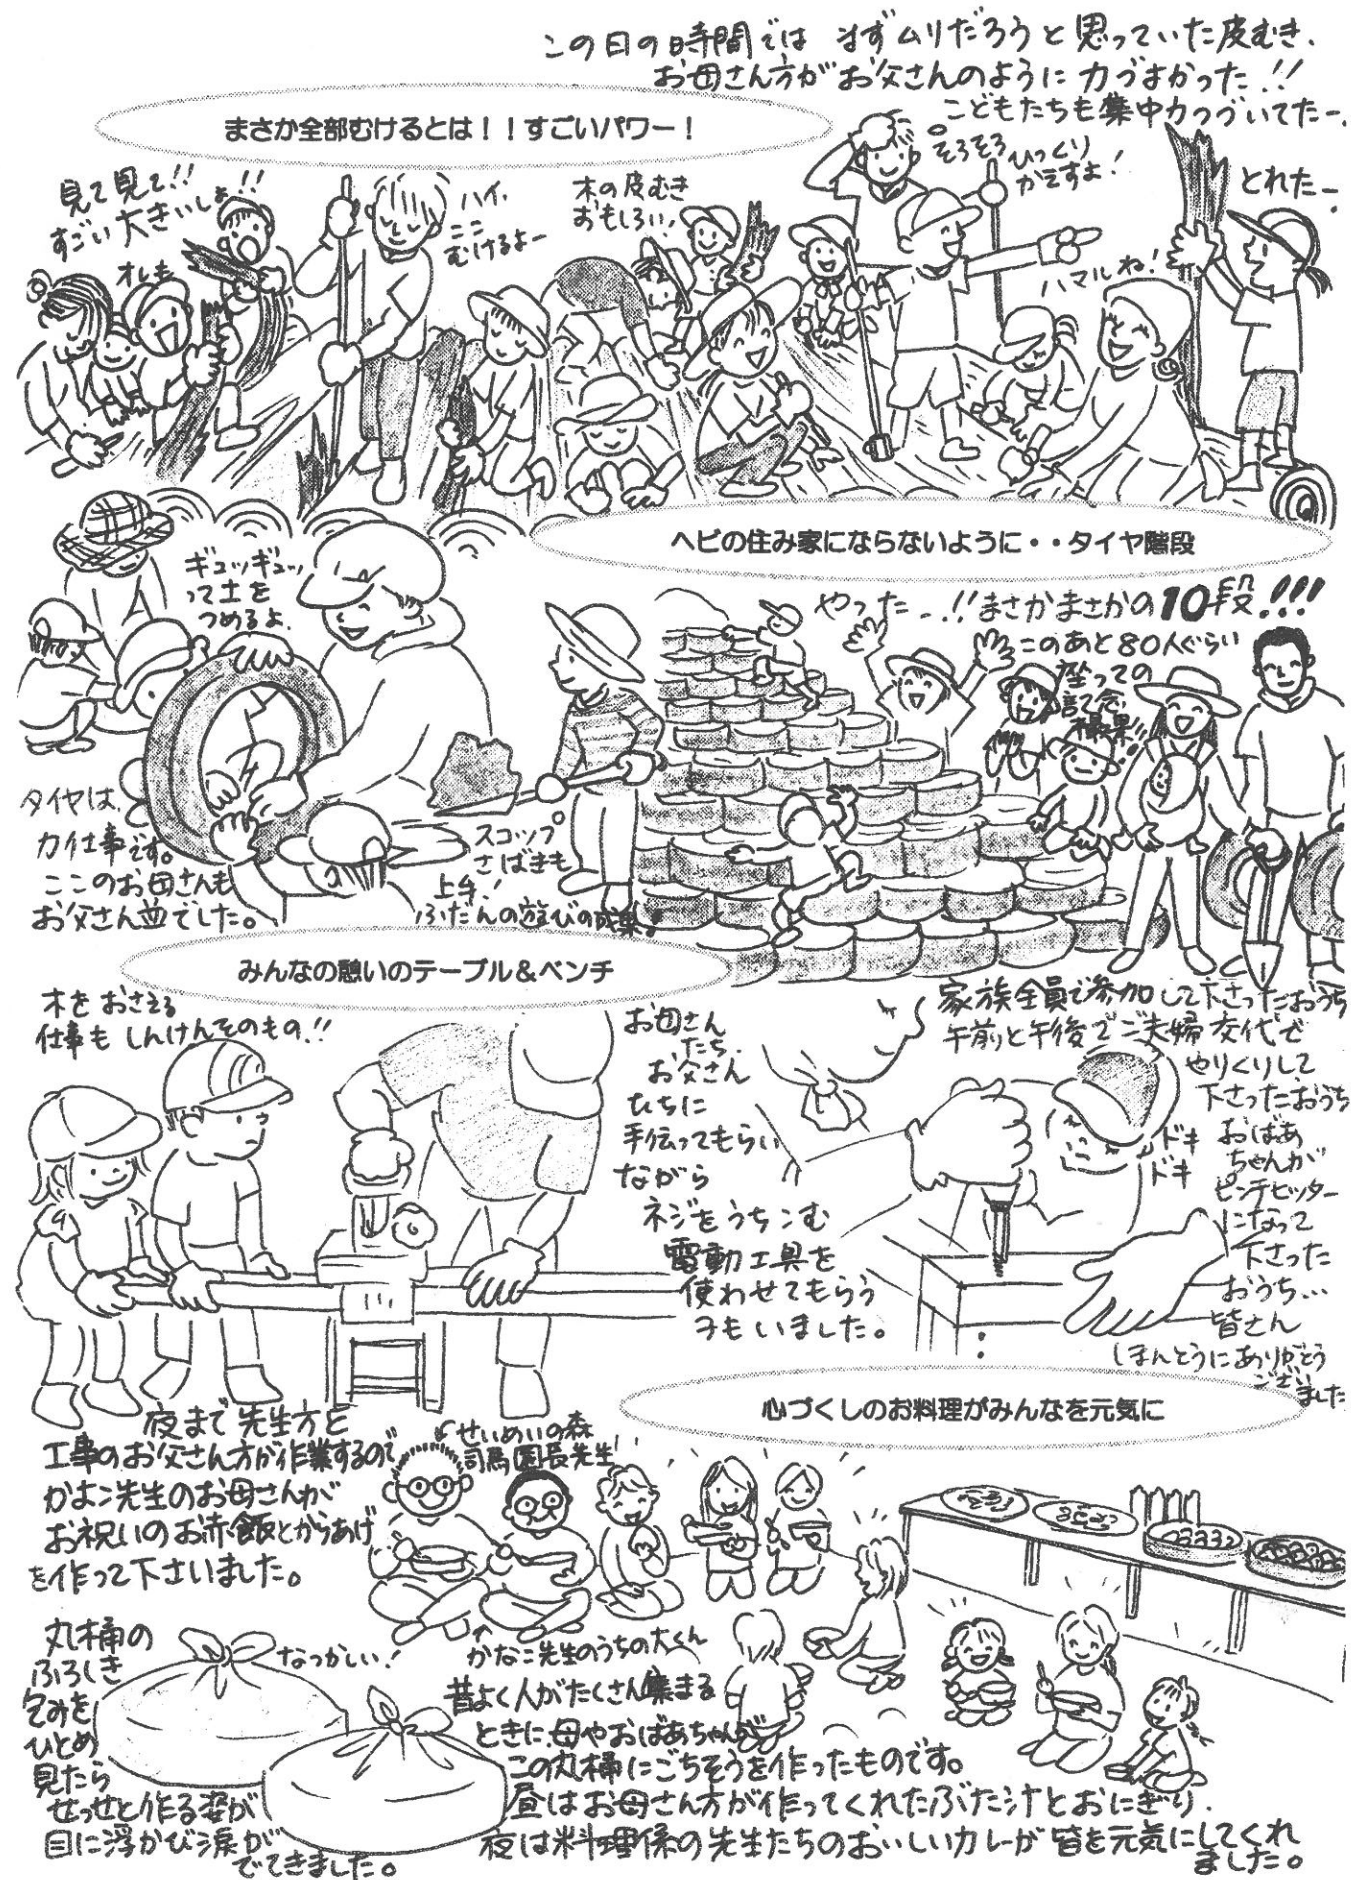 この日の時間では まずムリだろうと思っていた皮むき、
お母さん方がお父さんのように力づよかった!!
こどもたちも集中力つづいてたー。
まさか全部むけるとは！！すごいパワー！
見て見て!!
すごい大きいしょ!!
オレも
ハイ、
ここ
むけるよー
木の皮むき
おもしろい!
そろそろひっくり
かえすよ!
ハマルね!
とれたー
ヘビの住み家にならないように・・タイヤ階段
ギュッギュッ
って土を
つめるよ。
やったー!!まさかまさかの10段!!!
このあと80人ぐらい
座っての
記念
撮影!!
タイヤは、
力仕事です。
ここのお母さんも
お父さん並でした。
スコップ
さばきも
上手!
ふだんの遊びの成果!
みんなの憩いのテーブル＆ベンチ
木をおさえる
仕事もしんけんそのもの!!
お母さん
たち、
お父さん
たちに
手伝ってもらい
ながら
ネジをうちこむ
電動工具を
使わせてもらう
子もいました。
家族全員で参加して下さったおうち
午前と午後でご夫婦交代で
やりくりして
下さったおうち
おばあ
ちゃんが
ピンチヒッター
になって
下さった
おうち…
皆さん
ほんとうにありがとう
ござい
ました
ドキ
ドキ
心づくしのお料理がみんなを元気に
夜まで先生方と
工事のお父さん方が作業するので
かよこ先生のお母さんが
お祝いのお赤飯とからあげ
を作って下さいました。
せいめいの森
司馬園長先生
かなこ先生のうちの大くん
丸桶の
ふろしき
包みを
ひとめ
見たら
せっせと作る姿が
目に浮かび涙が
でてきました。
なつかしい!
昔よく人がたくさん集まる
ときに母やおばあちゃんが
この丸桶にごちそうを作ったものです。
昼はお母さん方が作ってくれたぶた汁とおにぎり、
夜は料理係の先生たちのおいしいカレーが皆を元気にしてくれ
ました。